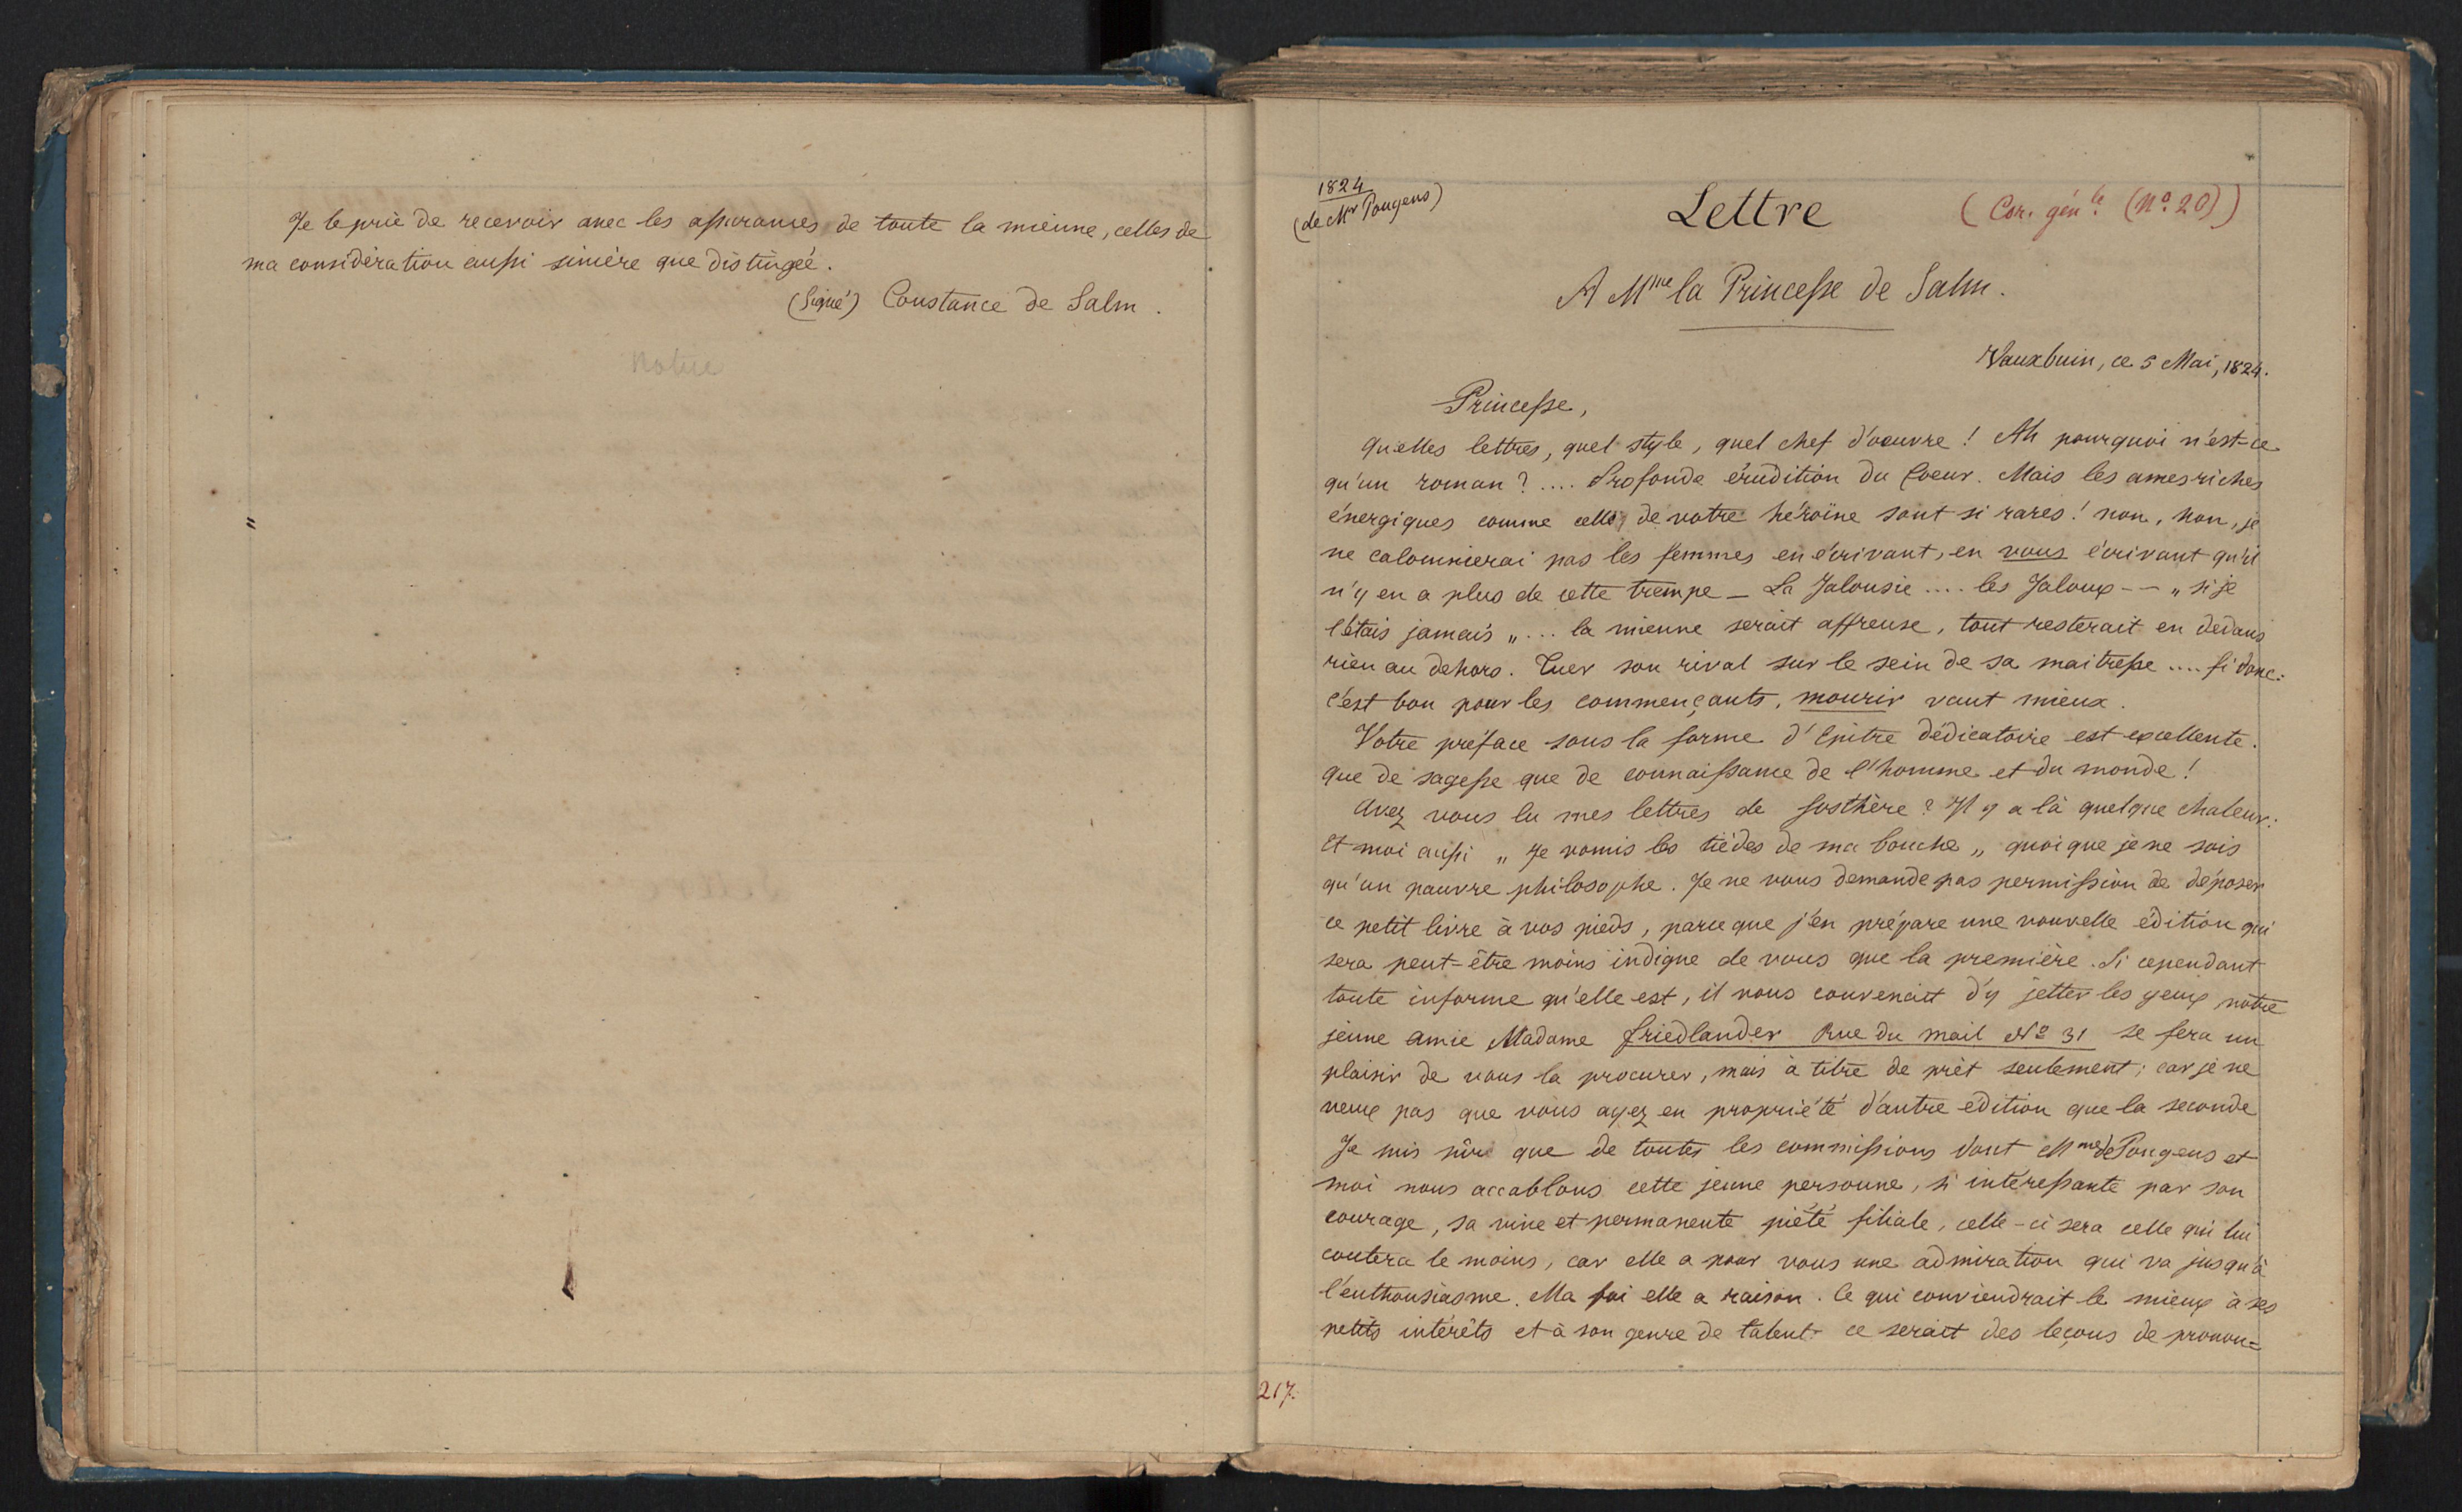 Je le prie de recevoir avec les assurances de toute la mienne, celles de
ma considération aussi sincère que distingée.
(Signé) Constance de Salm.
1824
(de Mr Pougens)
Lettre
(Cor. génle. (No. 20))
A Mme la Princesse de Salm.
Vauxbuin, ce 5 Mai, 1824.
Princesse,
Quelles lettres, quel style, quel chef d'oeuvre ! Ah pourquoi n'est-ce
qu'un roman ? .... Profonde érudition du Coeur. Mais les ames riches
énergiques comme celle de votre héroïne sont si rares ! non, non, je
ne calomnierai pas les femmes en écrivant, en vous écrivant qu'il
n'y en a plus de cette trempe _ La Jalousie .... les Jaloux -- „ si je
l'étais jamais „ ... la mienne serait affreuse, tout resterait en dedans
rien au dehors. Tuer son rival sur le sein de sa maitresse .... fi donc:
c'est bon pour les commençants, mourir vaut mieux.
Votre préface sous la forme d'Epitre dédicatoire est excellente.
que de sagesse que de connaissance de l'homme et du monde !
Avez vous lu mes lettres de Sosthère ? Il y a là quelque chaleur:
Et moi aussi „ Je vomis les tiédes de ma bouche „ quoique je ne sois
qu'un pauvre philosophe. Je ne vous demande pas permission de déposer
ce petit livre à vos pieds, parceque j'en prépare une nouvelle édition qui
sera peut-être moins indigne de vous que la première. Si cependant
toute informe qu'elle est, il vous convenait d'y jetter les yeux, notre
jeune amie Madame Friedlander Rue du mail No 31 se fera un
plaisir de vous la procurer, mais à titre de prêt seulement; car je ne
veux pas que vous ayez en propriété d'autre édition que la seconde
Je suis sûr que de toutes les commissions dont Mme de Pougens et
moi nous accablons cette jeune personne, si intéressante par son
courage, sa vive et permanente piété filiale, celle-ci sera celle qui lui
coutera le moins, car elle a pour vous une admiration qui va jusqu'à
l'enthousiasme. Ma foi elle a raison. Ce qui conviendrait le mieux à ses
petits intérêts et à son genre de talent ce serait des leçons de pronon=
217.